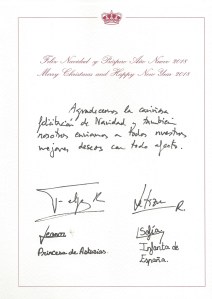 Feliz Navidad y Próspero Año Nuevo 2018
Merry Christmas and Happy New Year 2018
Agradecemos la cariñosa
felicitación de Navidad y también
nosotros enviamos a todos nuestros
mejores deseos con todo afecto.
Felipe R.
Letizia R.
Leonor
Princesa de Asturias
Sofía
Infanta de
España